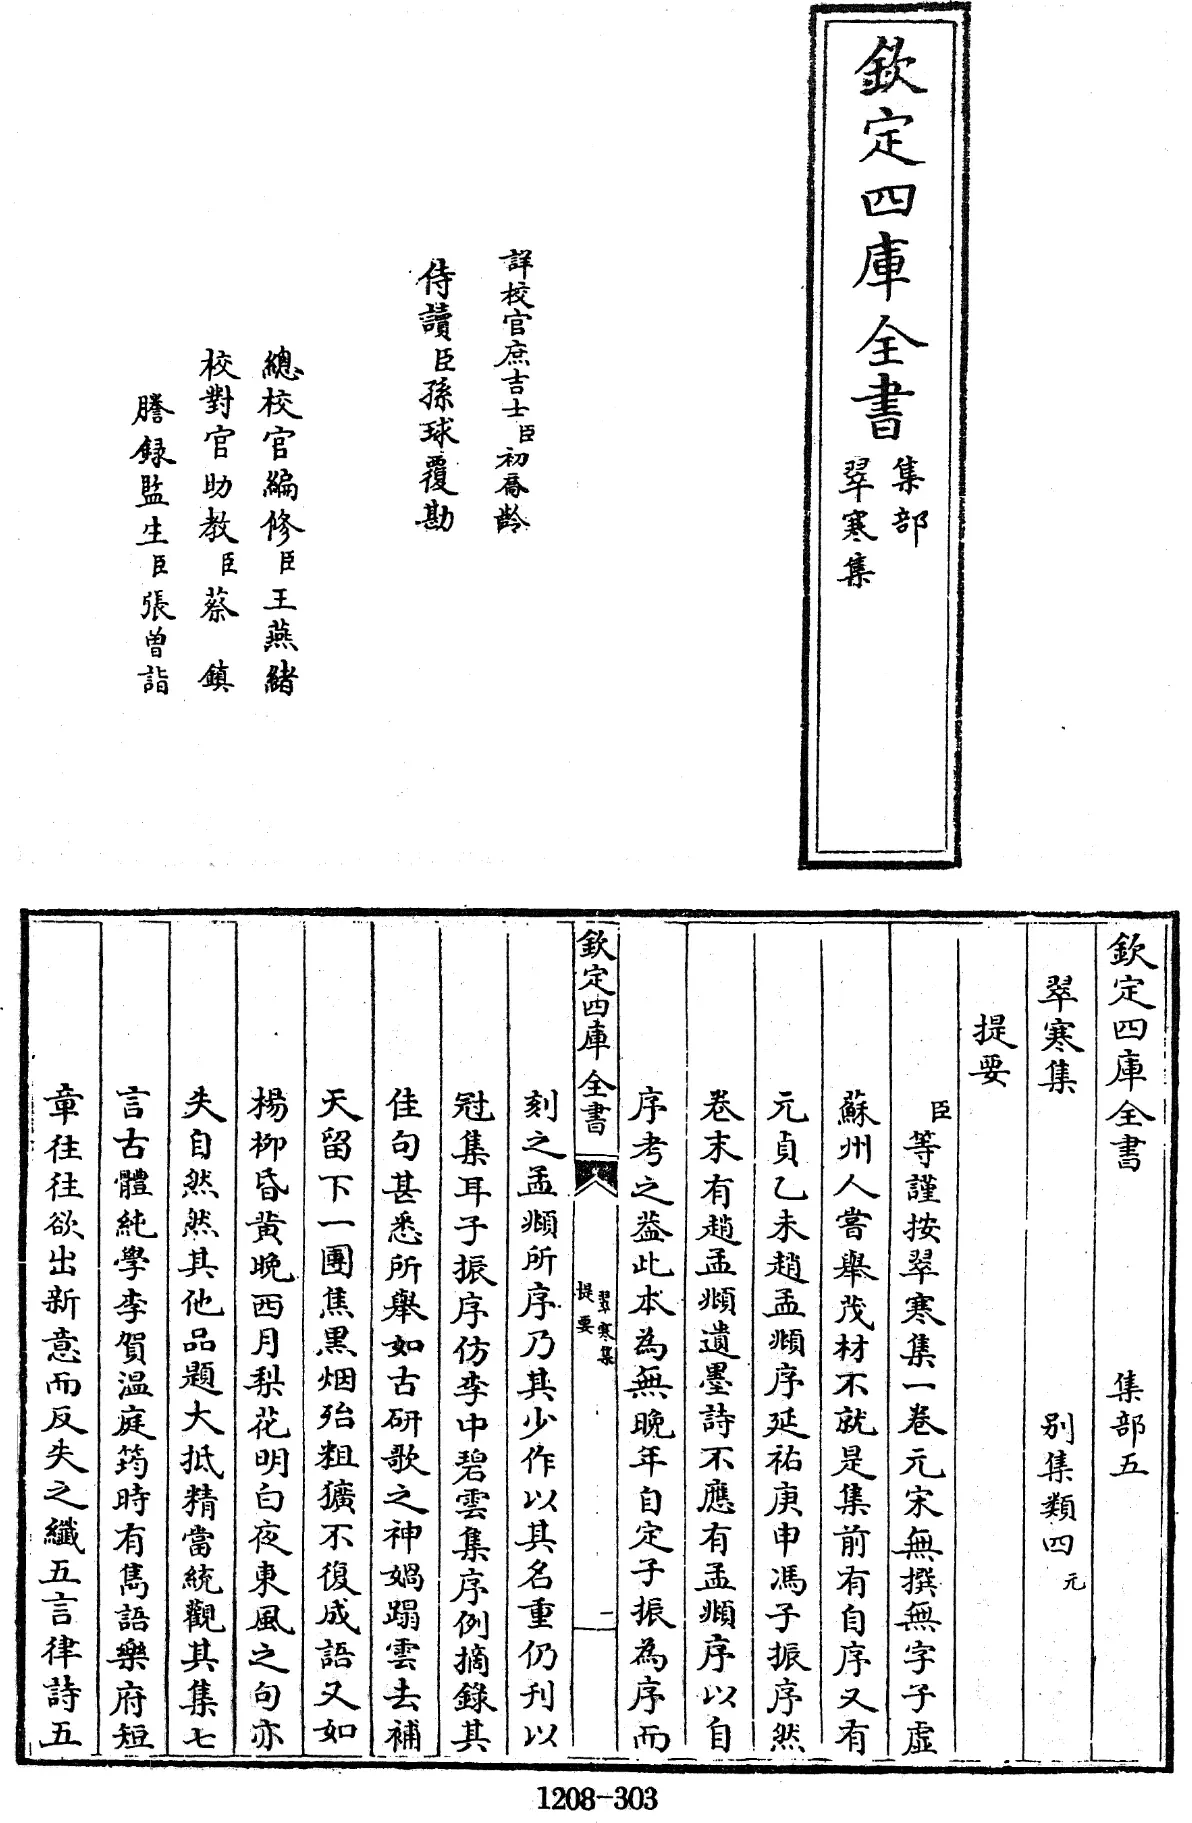 欽定四庫全書
集部
翠寒集
詳校官庶吉士臣初喬齡
侍讀臣孫球覆勘
總校官編修臣王燕緒
校對官助教臣蔡鎮
謄録監生臣張曾詣
欽定四庫全書 集部五
翠寒集 别集類四元
提要
臣等謹按翠寒集一卷元宋無撰無字子虚
蘇州人嘗舉茂材不就是集前有自序又有
元貞乙未趙孟頫序延祐庚申馮子振序然
卷末有趙孟頫遺墨詩不應有孟頫序以自
序考之葢此本為無晚年自定子振為序而
欽定四庫全書
翠寒集
提要
二
刻之孟頫所序乃其少作以其名重仍刋以
冠集耳子振序仿李中碧雲集序例摘錄其
佳句甚悉所舉如古研歌之神媧蹋雲去補
天留下一團焦黒烟殆粗獷不復成語又如
楊柳昏黄晚西月梨花明白夜東風之句亦
失自然然其他品題大抵精當統觀其集七
言古體純學李賀温庭筠時有雋語樂府短
章往往欲出新意而反失之纖五言律詩五
1208-303